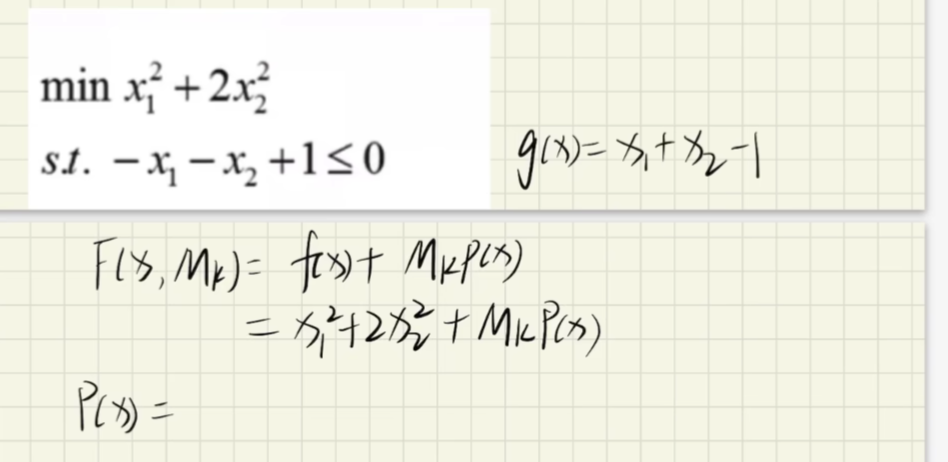 min x₁² + 2x₂²
s.t. −x₁ − x₂ + 1 ≤ 0
g(x) = x₁ + x₂ − 1
F(x, Mₖ) = f(x) + MₖP(x)
= x₁² + 2x₂² + MₖP(x)
P(x) =